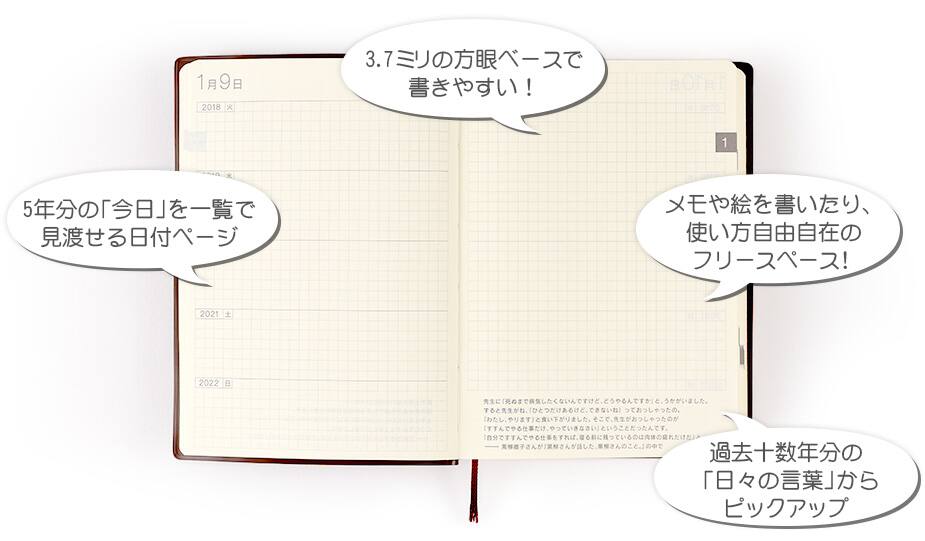 3.7ミリの方眼ベースで
書きやすい！
1月9日
2018 火
1
5年分の｢今日｣を一覧で
見渡せる日付ページ
メモや絵を書いたり、
使い方自由自在の
フリースペース!
2021 土
2022 日
先生に「死ぬまで病気したくないんですけど、どうやるんですか」と、うかがいました。
すると先生がね、「ひとつだけあるけど、できないね」っておっしゃったの。
「わたし、やります」と食い下がりました。そこで、先生がおっしゃったのが
「すすんでやる仕事だけ、やっていきなさい」ということだったんです。
「自分ですすんでやる仕事をすれば、寝る前に残っているのは肉体の疲れだけだ」
過去十数年分の
｢日々の言葉｣から
ピックアップ